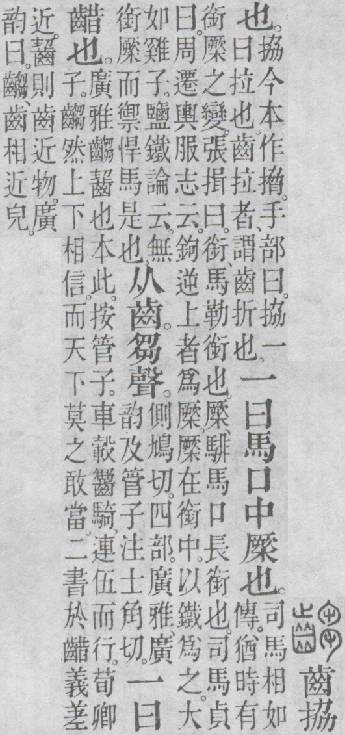 齒協
也。協今本作搚。手部曰。協、一
曰拉也。齒拉者、謂齒折也。
一曰馬口中橜也。
司馬相如
傳。猶時有
銜橜之變。張揖曰。銜、馬勒銜也。橜、騑馬口長銜也。司馬貞
曰。周遷輿服志云。鉤逆上者爲橜。橜在銜中。以鐵爲之。大
如雞子。鹽鐵論云。無
銜橜而禦悍馬是也。
从齒芻聲。
側鳩切。四部。廣雅、廣
韵及管子注士角切。
一曰
齰也。
廣雅。齺、齰也。本此。按管子。車轂齺騎、連伍而行。荀卿
子。齺然上下相信。而天下莫之敢當。二書於齰義差
近。齰則齒近物。廣
韵曰。齺、齒相近皃。